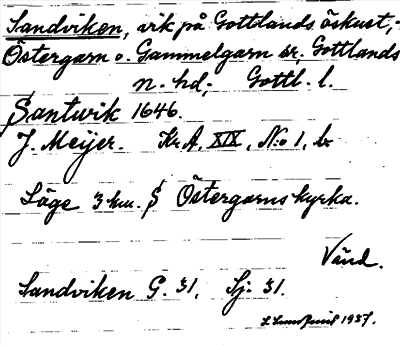 Sandviken, vik på Gottlands öskust,
Östergarn o. Gammelgarn sr, Gottlands
n. hd; Gottl. l.
Santwik 1646.
J. Meijer. Kr. A, XIX, N:o 1, b
Läge 3 km. S Östergarns kyrka.
Vänd.
Sandviken G. 31. Sj. 31.
1937.